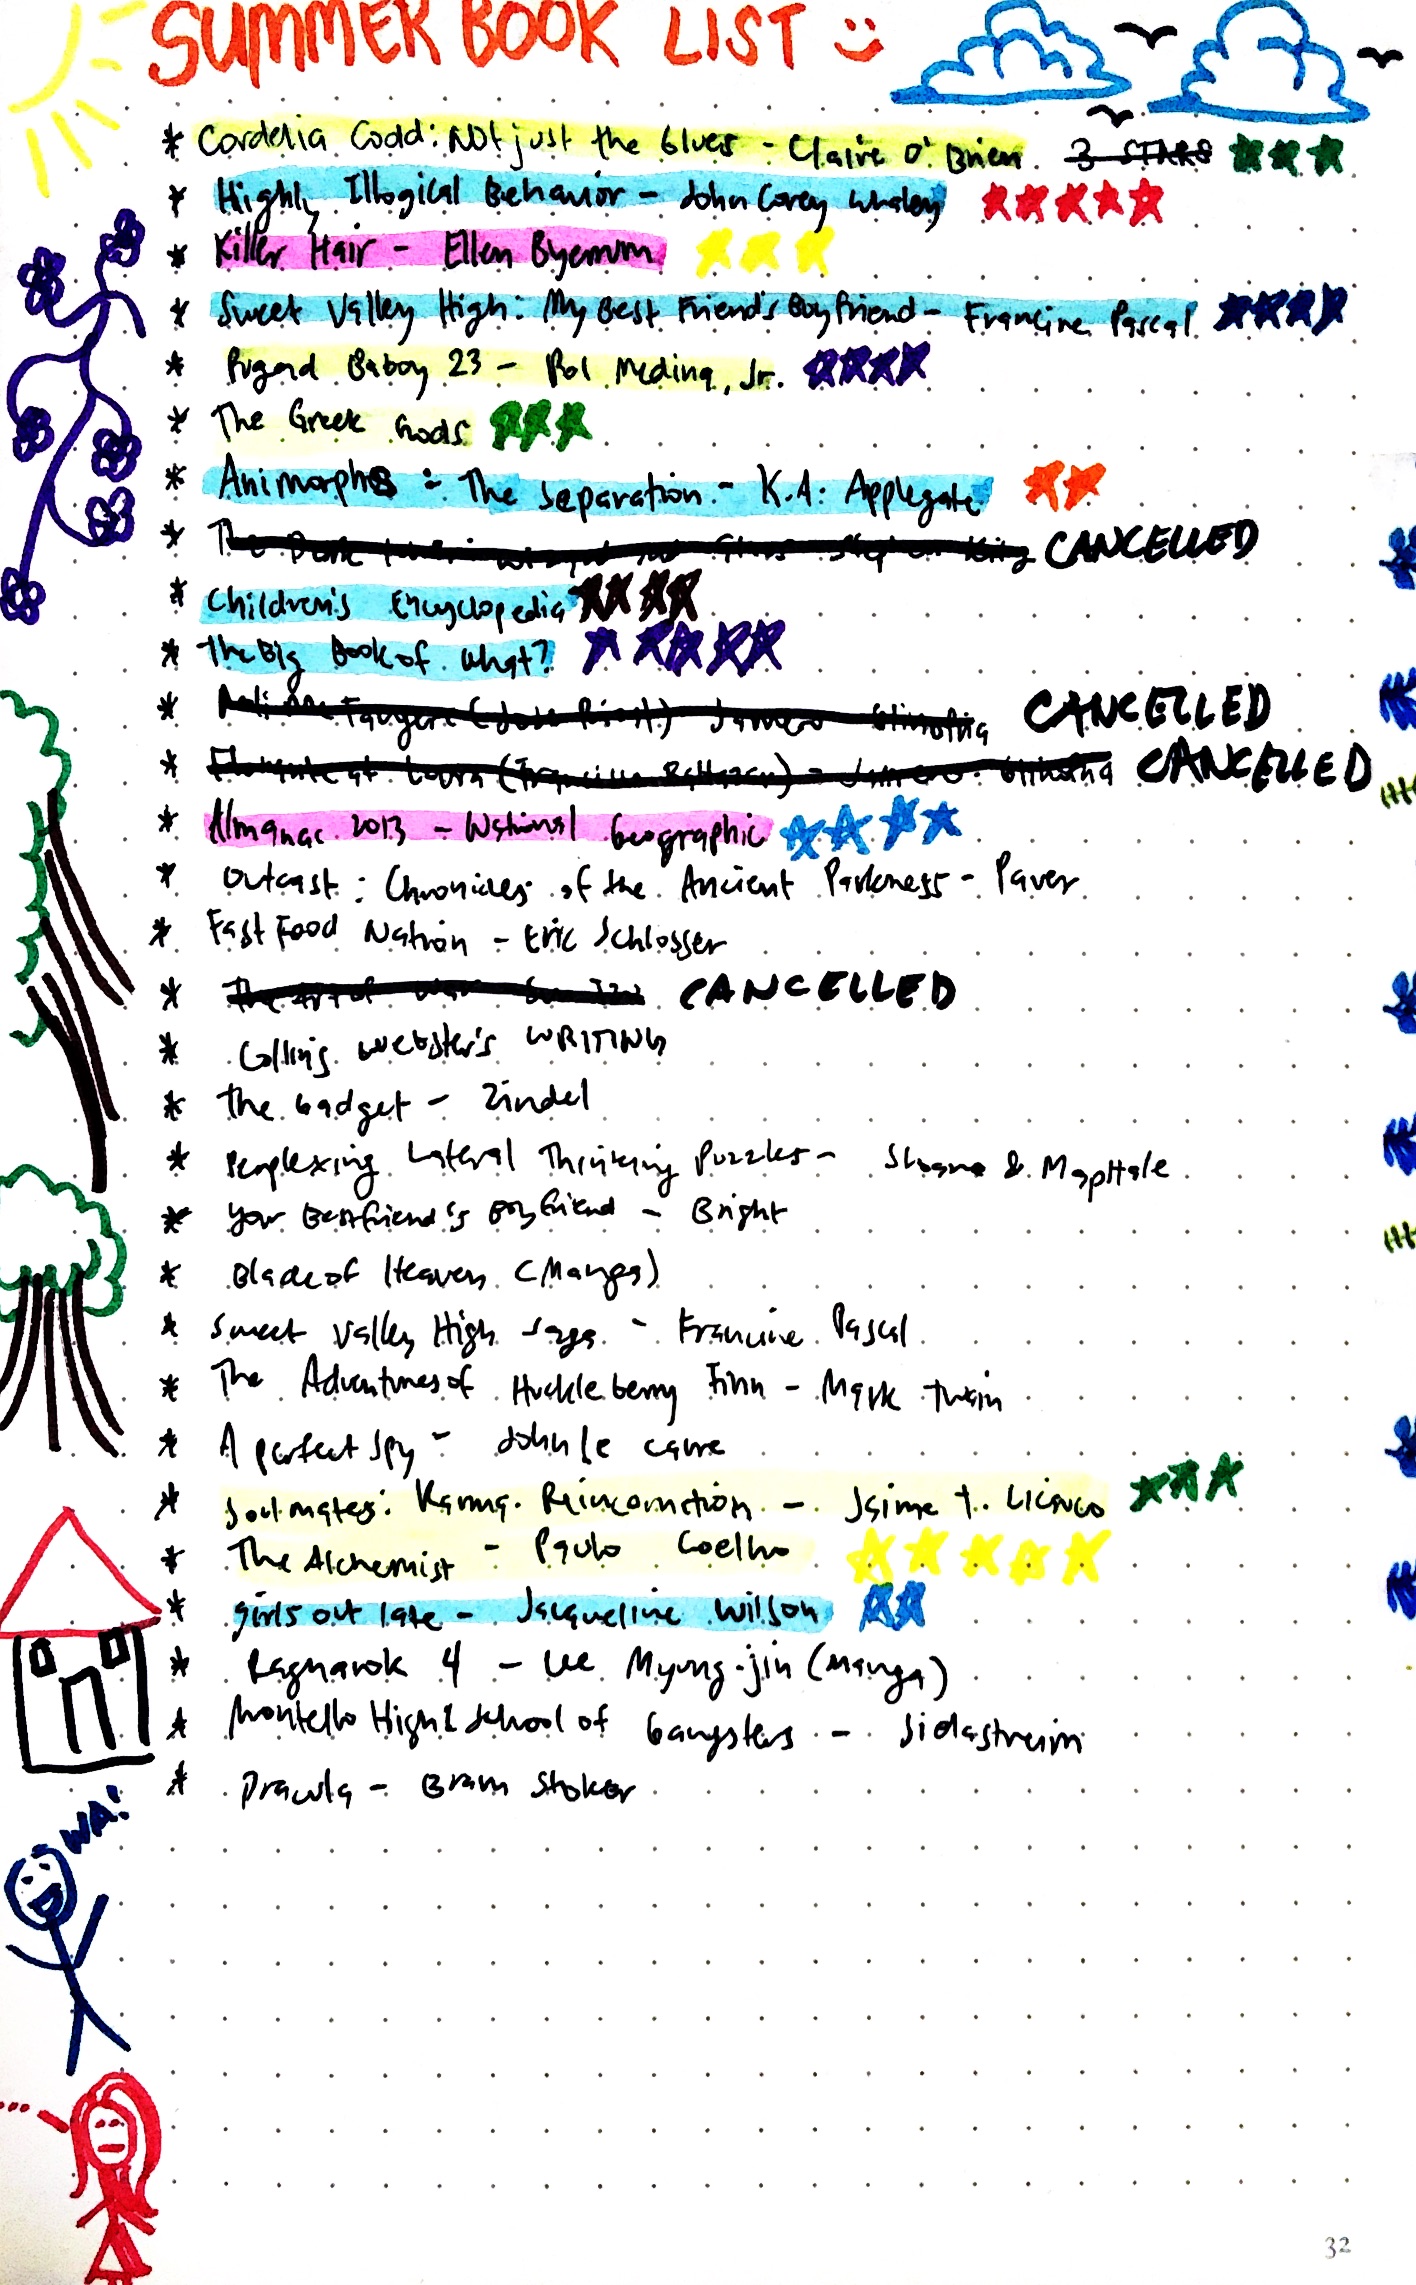 SUMMER BOOK LIST
* Cordelia Codd: Not just the blues - Claire O' Brien 3 STARS
* Highly Illogical Behavior - John Corey Whaley
* Killer Hair - Ellen Byerrum
* Sweet Valley High: My Best Friend's Boyfriend - Francine Pascal
* Pugad Baboy 23 - Pol Medina, Jr.
* The Greek Gods
* Animorphs: The Separation - K.A. Applegate
* The CANCELLED
* Children's Encyclopedia
* The Big Book of What?
* CANCELLED
* CANCELLED
* Almanac 2013 - National Geographic
* Outcast: Chronicles of the Ancient Darkness - Paver
* Fast Food Nation - Eric Schlosser
* The Art of War CANCELLED
* Collins Webster's WRITING
* The Gadget - Zindel
* Perplexing Lateral Thinking Puzzles - Sloane & MapHale
* Your Bestfriend's Boyfriend - Bright
* Blade of Heaven (Manga)
* Sweet Valley High Saga - Francine Pascal
* The Adventures of Huckleberry Finn - Mark Twain
* A perfect spy - John le carre
* Soulmates: Karma. Reincarnation - Jaime T. Licauco
* The Alchemist - Paulo Coelho
* Girls out late - Jacqueline Wilson
* Ragnarok 4 - Lee Myung-jin (Manga)
* Montello High: School of Gangsters - Sidastreim
* Dracula - Bram Stoker
WA!
32